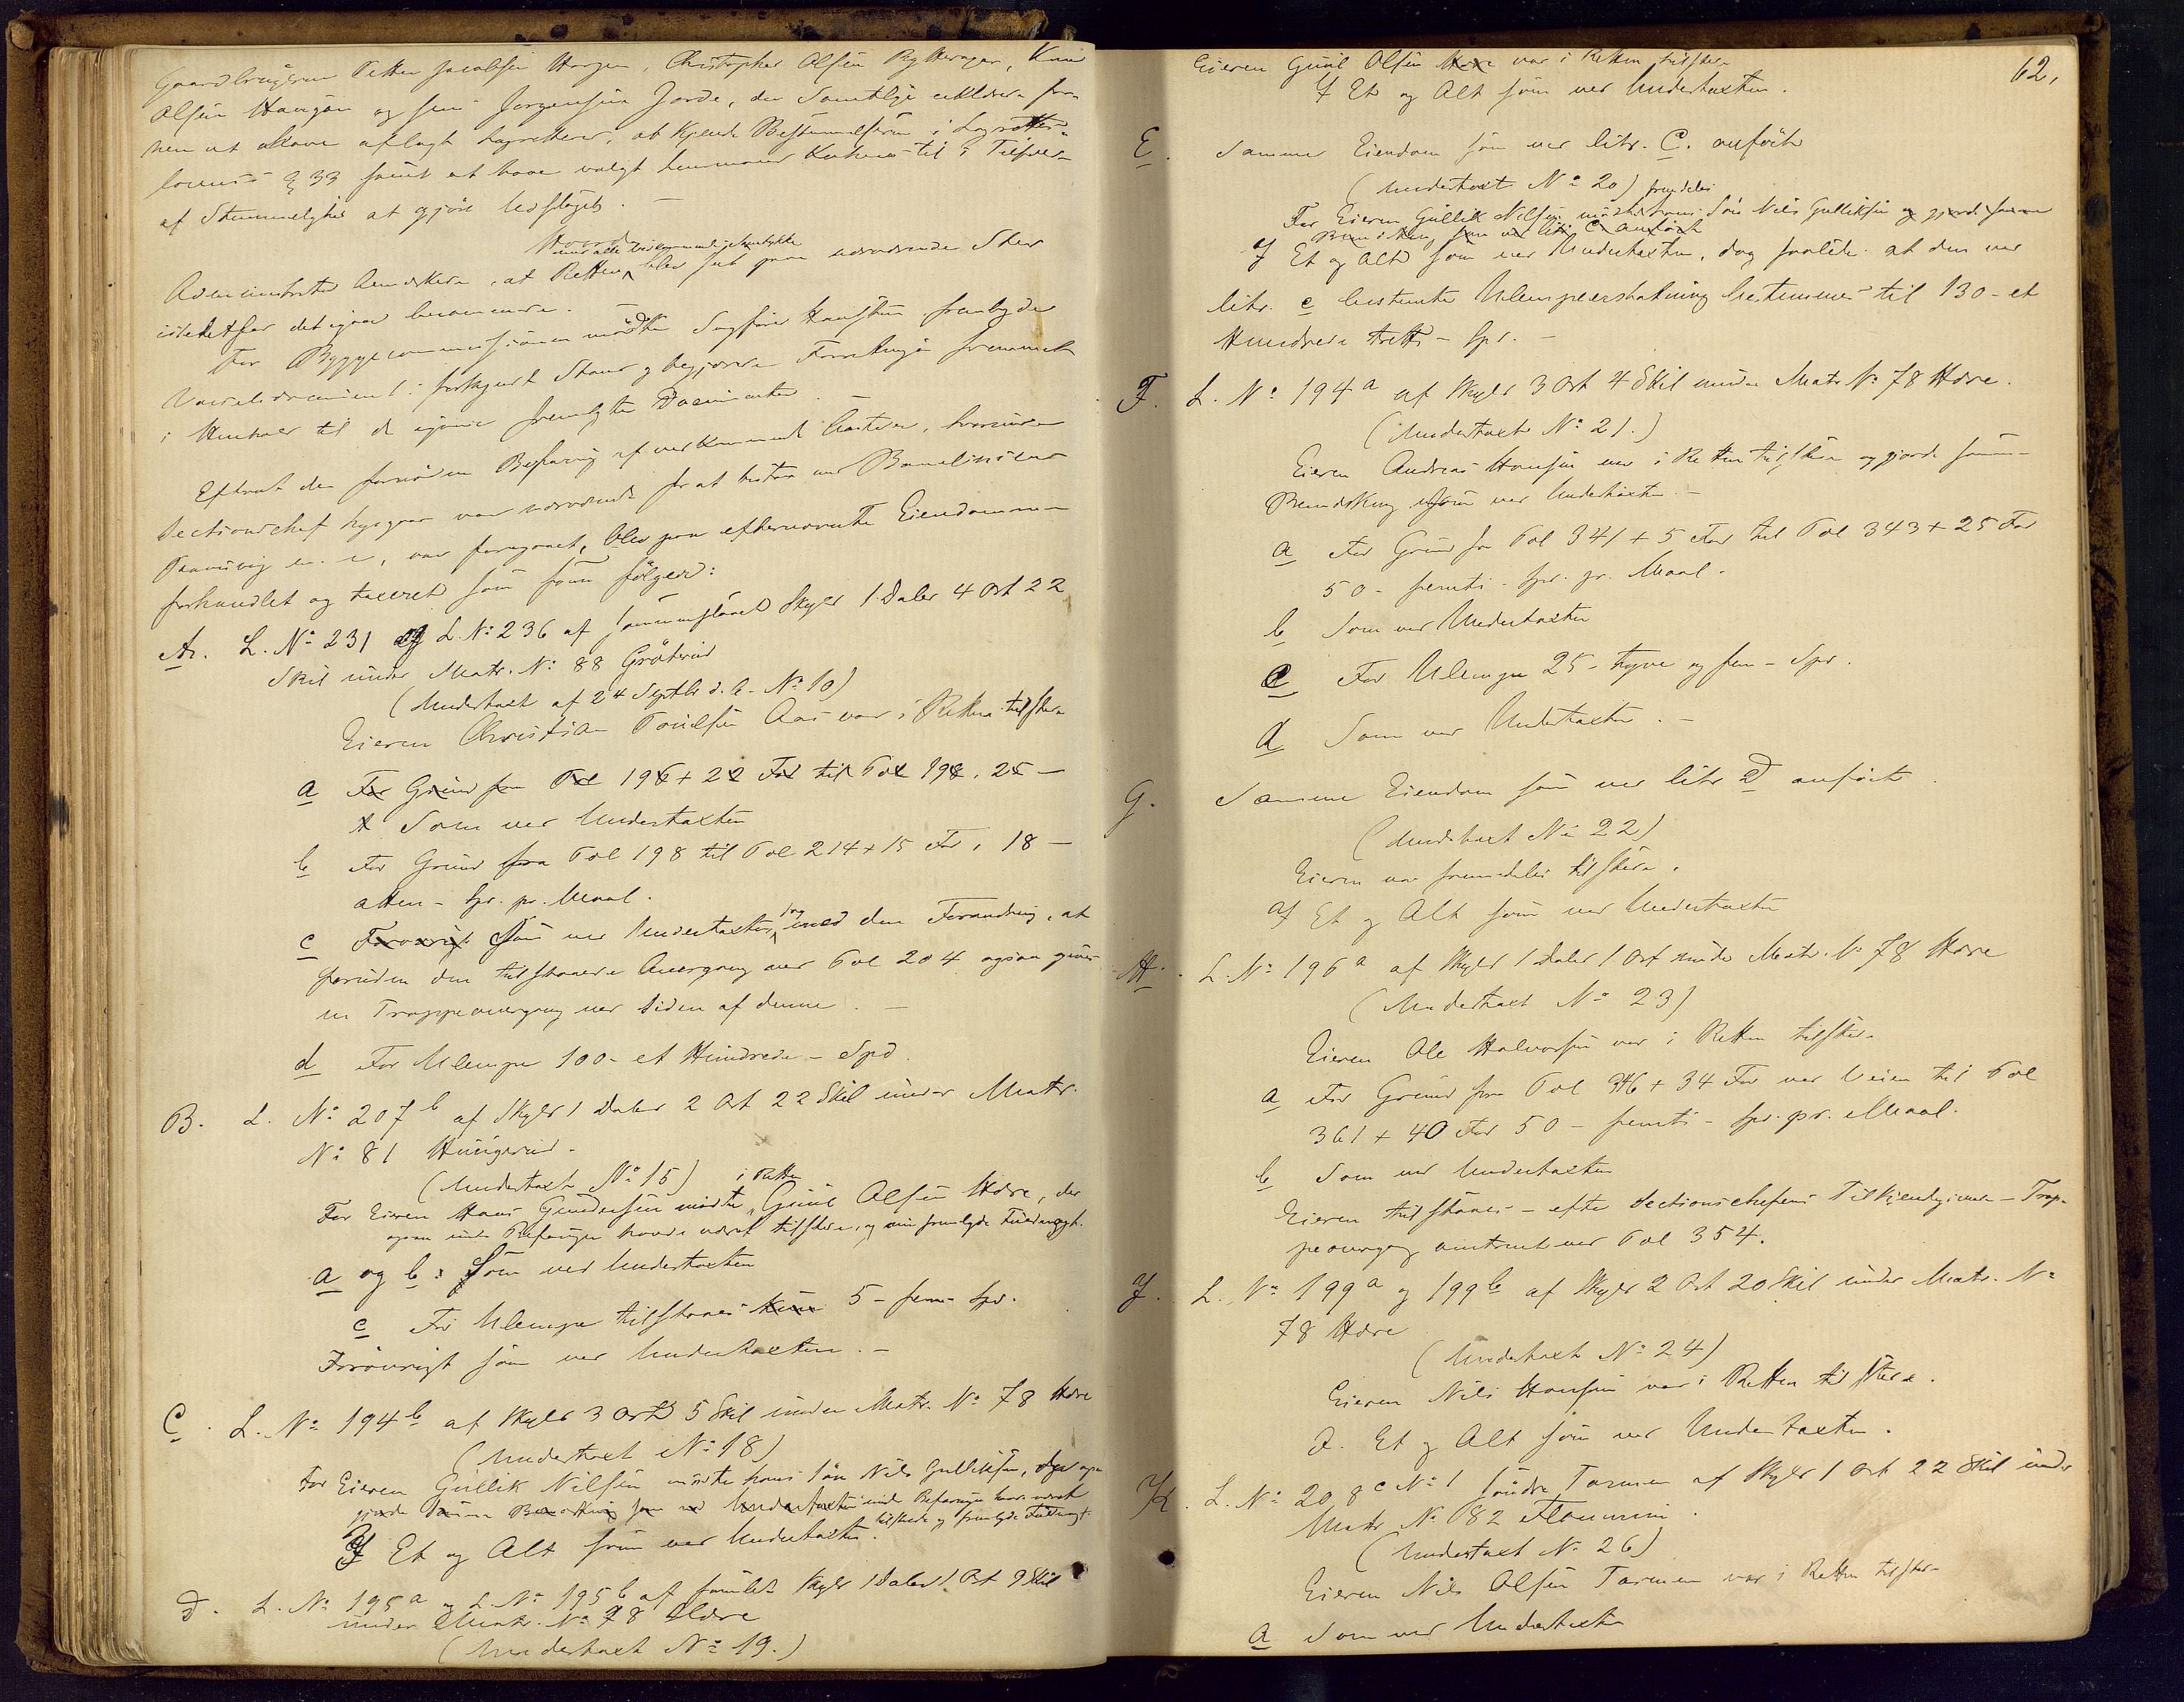 Gaardbrugerne Petter Jacobsen Horgen, Christopher Olsen Rytterager, Knud
Olsen Haugan og Jens Jørgensen Jorde, der Samtlige erklærer
at have aflagt Lagretteed, at kjende Bestemmelserne i
lovens § 33 samt at have valgt
af Stemmelighed at gjøre
med alle Vedkommendes Samtykke
Administrator bemærkede, at Retten blev sat paa nærværende Sted
istedetfor det igaar benævnte.
For Byggecommissionen mødte Sagfører Hansteen frembyder
forkyndt Stand og begjærede Forretningen fremmet
i Henhold til de igaar fremlagte Documenter.
Efterat den fornødne Befaring af vedkommende havde, hvorunder
Sectionschef Lysgaar var nærværende for at bistaa med Banelinien
Paavisning m. v., var foregaaet, blev paa efternævnte Eiendomme
forhandlet og taxeret som følger:
A. L. No 231 og L. No 236 af sammenslaaet Skyld 1 Daler 4 Ort 22
Skil under Matr. No 88 Grøterud
(Undertaxt af 24 Septbr d. A. No 10)
Eieren Christian Poulsen Aas var i Retten tilstede
a For Grund fra Pæl 196 + 22 Fod til Pæl 198, 25 —
Som ved Undertaxten
b For Grund fra Pæl 198 til Pæl 214 + 15 Fod, 18 —
atten - Spd. pr. Maal.
c Forøvrigt Som ved Undertaxten, dog med den Forandring, at
foruden den tilstaaede Overgang ved Pæl 204 ogsaa gives
en Trappeovergang ved Siden af denne. —
d For Ulempe 100 - et Hundrede - Spd.
B. L. No 207 b af Skyld 1 Daler 2 Ort 22 Skil under Matr.
No 81 Hungerud.
(Undertaxt No 15) i Retten
For Eieren Hans Gundersen mødte Guul Olsen Hore, der
ogsaa under Befaringen havde været tilstede, og
a og b: Som ved Undertaxten
c For Ulempe tilstaaes kun 5 - fem - Spd.
Forøvrigt som ved Undertaxten. —
C. L. No 194 b af Skyld 3 Ort 5 Skil under Matr. No 78 Hore
(Undertaxt No 18)
For Eieren Gullik Nilsen mødte hans Søn Nils Gulliksen,
gjorde samme Bemærkning som ved Undertaxten under Befaringen havde været
tilstede og fremlagde Fuldmagt.
Af Et og Alt som ved Undertaxten.
D. L. No 195 a og L. No 195 b af samlet Skyld 1 Daler 1 Ort 9 Skil
under Matr. No 78 Hore
(Undertaxt No 19.)
62,
Eieren Guul Olsen Hore var i Retten tilstede
Af Et og Alt som ved Undertaxten.
E. Samme Eiendom som ved litr. C. anført
(Undertaxt No 20) fremdeles
For Eieren Gullik Nilsen mødte hans Søn Nils Gulliksen og gjorde samme
Bemærkning som ved litr. C anført
Af Et og Alt som ved Undertaxten, dog saaledes at den ved
litr. c bestemte Ulempeerstatning bestemmes til 130 - et
Hundrede tretti - Spd. —
F. L. No 194 a af Skyld 3 Ort 4 Skil under Matr No 78 Hore.
(Undertaxt No 21.)
Eieren Andreas Hansen var i Retten tilstede og gjorde samme
Bemærkning som ved Undertaxten. —
a For Grund fra Pæl 341 + 5 Fod til Pæl 343 + 25 Fod
50 - femti - Spd. pr. Maal.
b Som ved Undertaxten
c For Ulempe 25 - tyve og fem - Spd.
d Som ved Undertaxten. —
G. Samme Eiendom som ved litr D anført.
(Undertaxt No 22)
Eieren var fremdeles tilstede.
Af Et og Alt som ved Undertaxten
H. L. No 196 a af Skyld 1 Daler 1 Ort under Matr. No 78 Hore
(Undertaxt No 23)
Eieren Ole Halvorsen var i Retten tilstede
a For Grund fra Pæl 346 + 34 Fod ved Veien til Pæl
361 + 40 Fod 50 - femti - Spd. pr. Maal.
b Som ved Undertaxten
Eieren tilstaaes - efter Sectionschefens Tilkjendegivende - Trap-
peovergang omtrent ved Pæl 354.
J. L. No 199 a og 199 b af Skyld 2 Ort 20 Skil under Matr. No
78 Hore
(Undertaxt No 24)
Eieren Nils Hansen var i Retten tilstede.
Et og Alt som ved Undertaxten.
K. L. No 208 c No 1 søndre Tormen af Skyld 1 Ort 22 Skil under
Matr No 82
(Undertaxt No 26)
Eieren Nils Olsen Tormen var i Retten tilstede
a Som ved Undertaxten